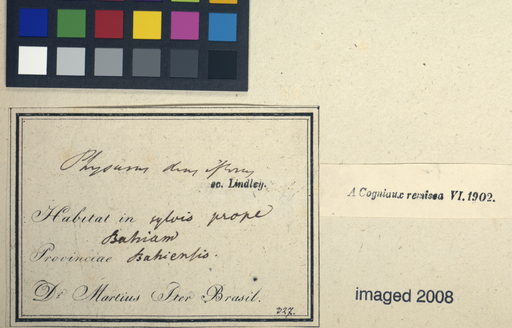 Physurus densiflorus
sc. Lindley.
Habitat in sylvis prope
Bahiam
Provinciae Bahiensis.
Dr Martius Iter Brasil.
327.
A Cogniaux remissa VI. 1902.
imaged 2008